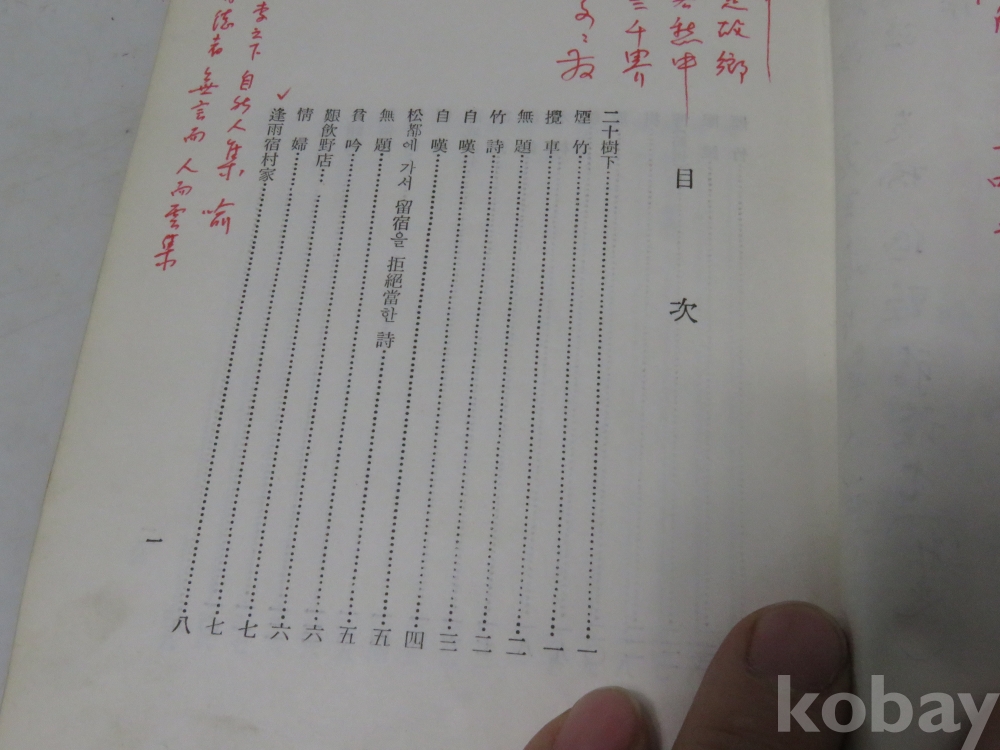 故鄉
愁中
三千界
目次
二十樹下 一
煙竹 一
攪車 二
無題 二
竹詩 三
自嘆 四
自嘆 五
松都에 가서 留宿을 拒絶當한 詩 五
無題 六
貧吟 六
艱飮野店 七
情婦 七
逢雨宿村家 八
李之下 自然人集 喻
德者 無言而 人而雲集
一
kobay